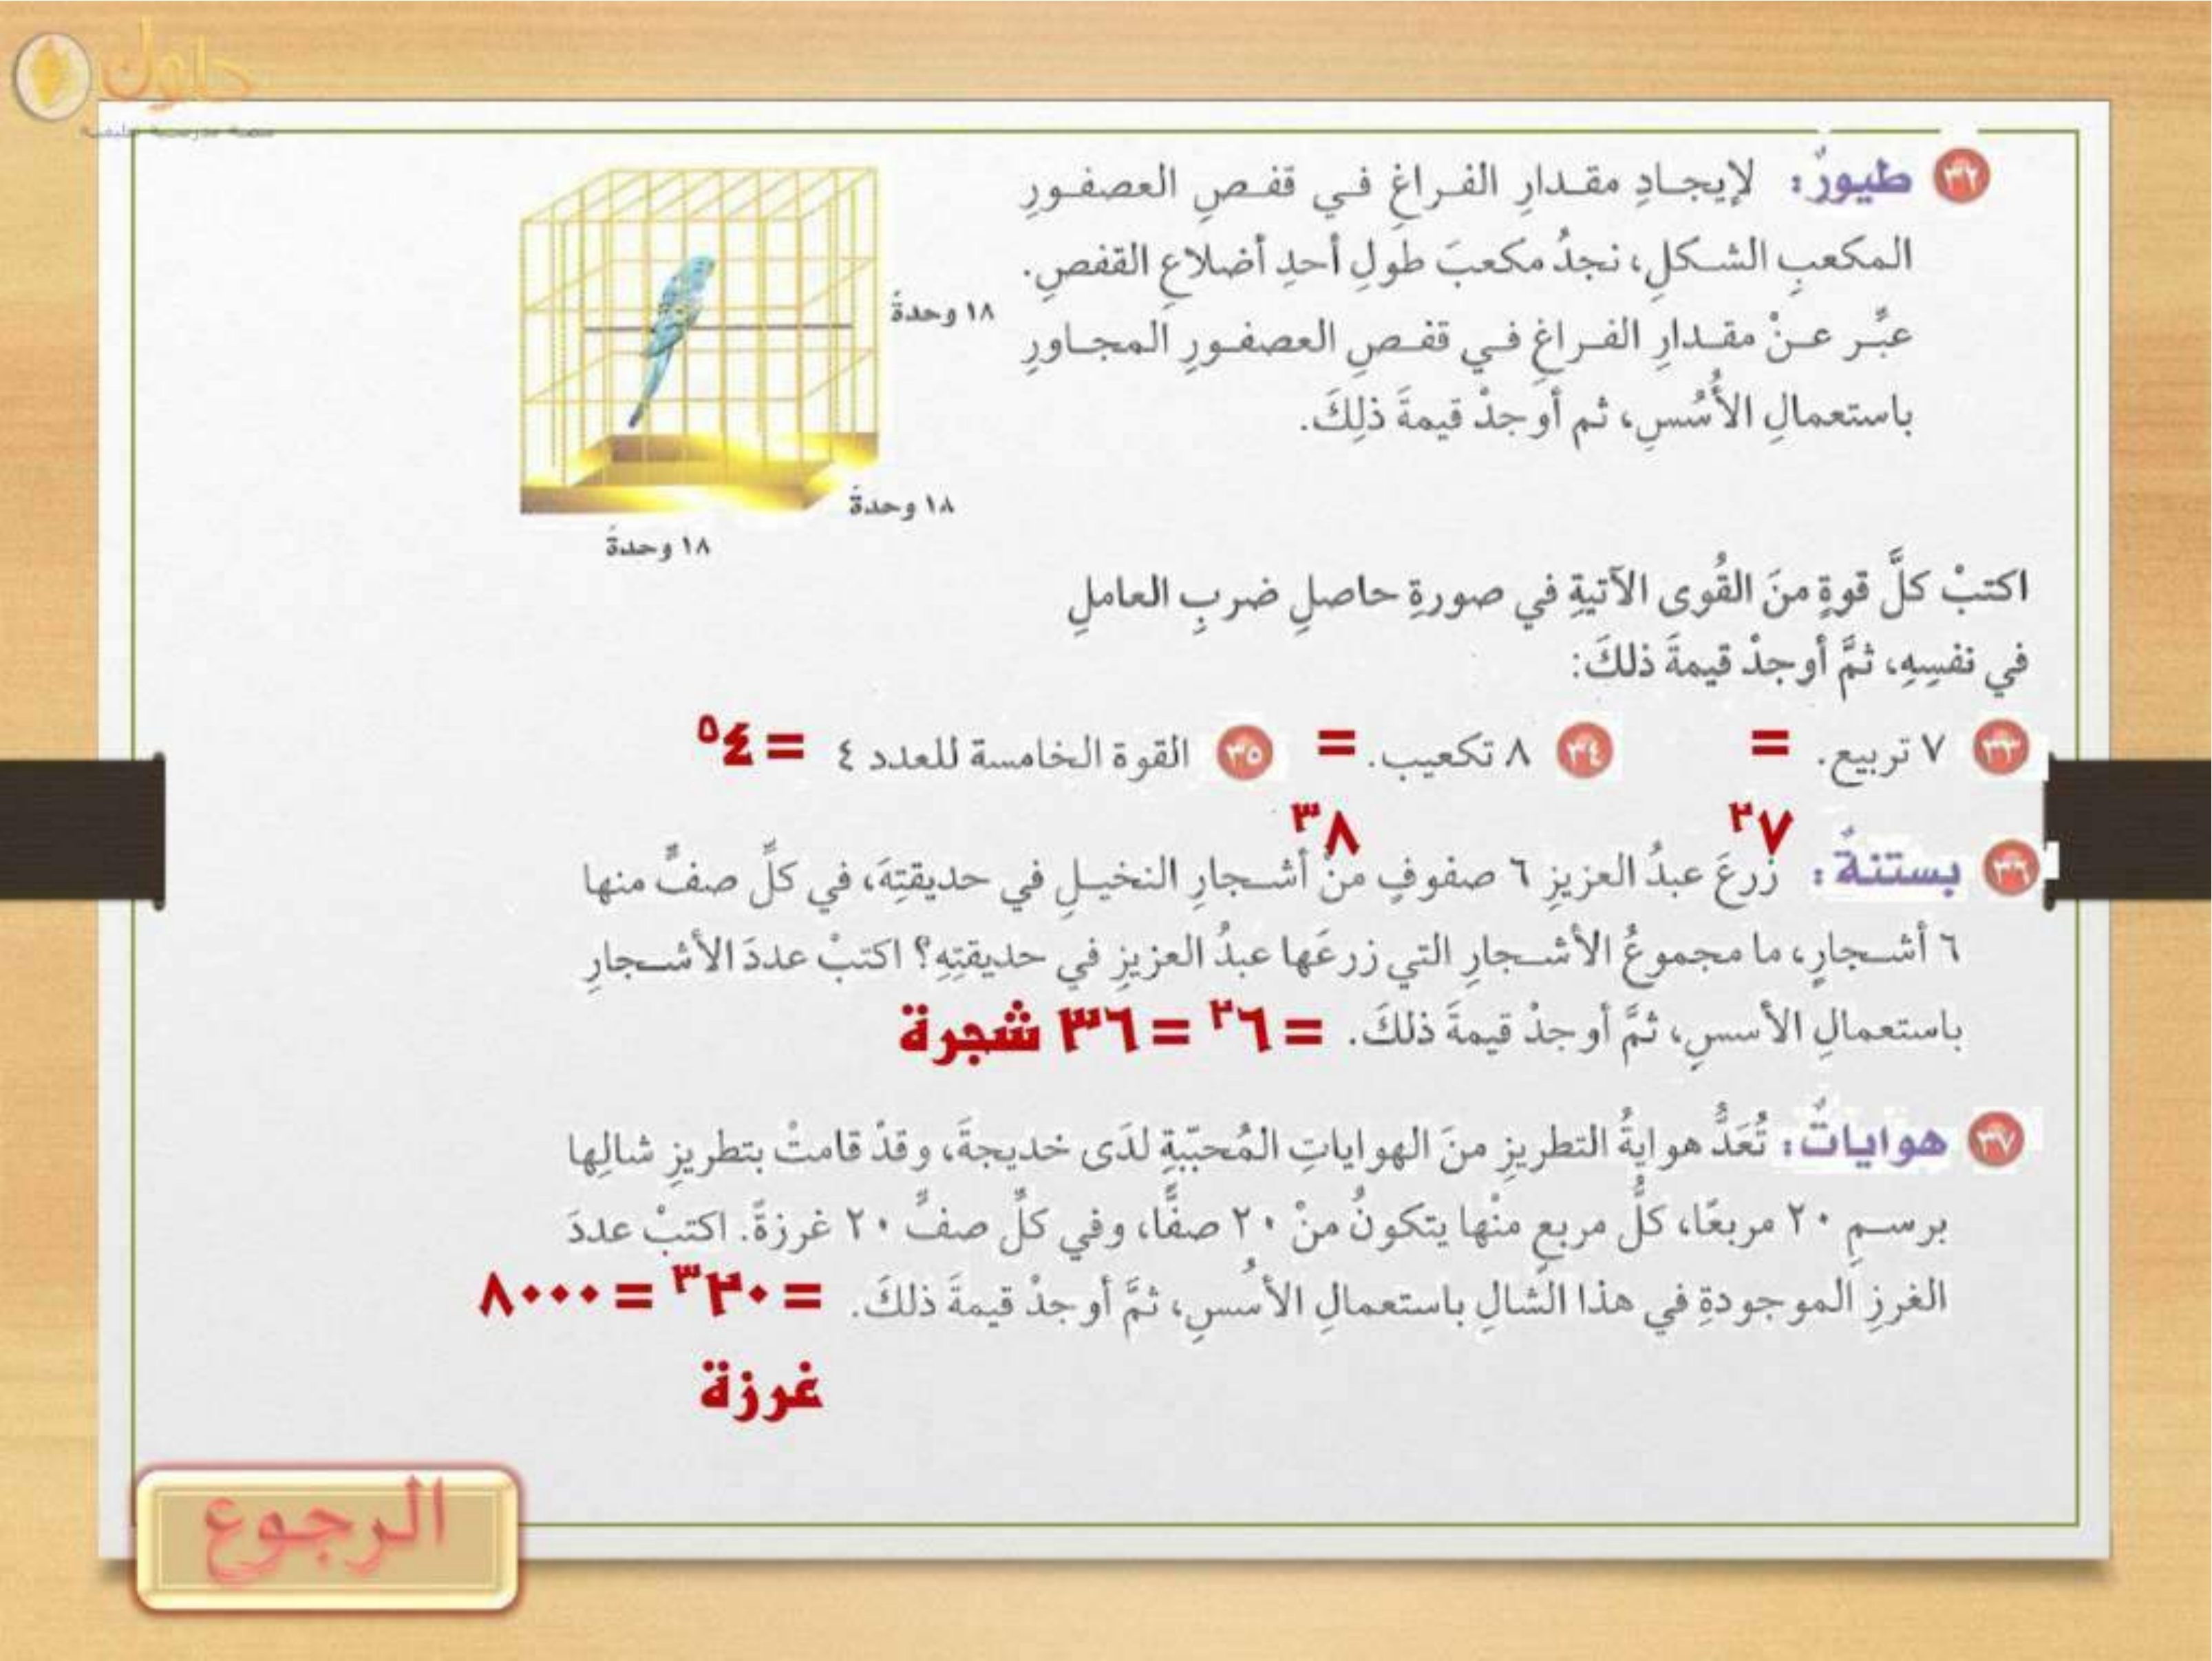 حلول
منصة مدرستي تعليمية
٣٢ طيورٌ: لإيجادِ مقدارِ الفراغِ في قفصِ العصفورِ
المكعبِ الشكلِ، نجدُ مكعبَ طولِ أحدِ أضلاعِ القفصِ.
عبِّر عنْ مقدارِ الفراغِ في قفصِ العصفورِ المجاورِ
باستعمالِ الأُسُسِ، ثم أوجدْ قيمةَ ذلِكَ.
١٨ وحدةً
١٨ وحدةً
١٨ وحدةً
اكتبْ كلَّ قوةٍ منَ القُوى الآتيةِ في صورةِ حاصلِ ضربِ العاملِ
في نفسِهِ، ثمَّ أوجدْ قيمةَ ذلكَ:
٣٣ ٧ تربيع. = ٣٤ ٨ تكعيب. = ٣٥ القوة الخامسة للعدد ٤ = ٤⁵
٧² ٨³
٣٦ بستنةٌ: زرعَ عبدُ العزيزِ ٦ صفوفٍ منْ أشجارِ النخيلِ في حديقتِهَ، في كلِّ صفٍّ منها
٦ أشجارٍ، ما مجموعُ الأشجارِ التي زرعَها عبدُ العزيزِ في حديقتِهِ؟ اكتبْ عددَ الأشجارِ
باستعمالِ الأسسِ، ثمَّ أوجدْ قيمةَ ذلكَ. = ٦² = ٣٦ شجرة
٣٧ هواياتٌ: تُعَدُّ هوايةُ التطريزِ منَ الهواياتِ المُحبّبةِ لدَى خديجةَ، وقدْ قامتْ بتطريزِ شالِها
برسمِ ٢٠ مربعًا، كلُّ مربعٍ منْها يتكونُ منْ ٢٠ صفًّا، وفي كلِّ صفٍّ ٢٠ غرزةً. اكتبْ عددَ
الغرزِ الموجودةِ في هذا الشالِ باستعمالِ الأُسسِ، ثمَّ أوجدْ قيمةَ ذلكَ. = ٢٠³ = ٨٠٠٠
غرزة
الرجوع